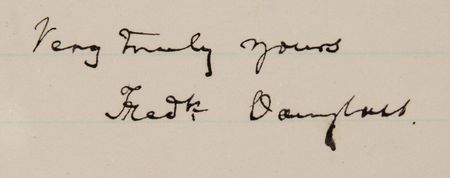 Very truly yours
Fredk. Douglass.